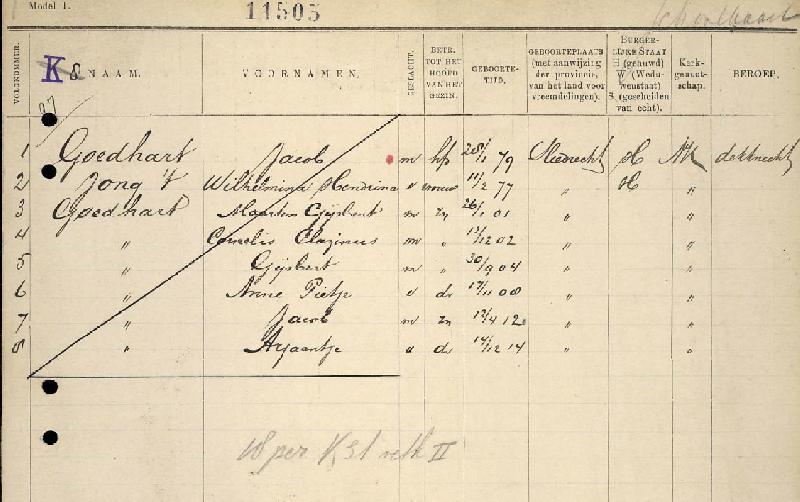 Model 1.
11505
VOLGNUMMER.
K 8
NAAM.
VOORNAMEN.
GESLACHT.
BETR. TOT HET HOOFD VAN HET GEZIN.
GEBOORTE-TIJD.
GEBOORTEPLAATS (met aanwijzing der provincie, van het land voor vreemdelingen).
BURGER-LIJKE STAAT H (gehuwd) W (Weduwenstaat) S (gescheiden van echt).
Kerk-genoot-schap.
BEROEP.
1 Goedhart Jacob m hfd 28/11 79 Sliedrecht H NH dekknecht
2 Jong 't Wilhelmina Hendrina v vrouw 11/2 77 " H "
3 Goedhart Maarten Gijsbert m zn 26/1 01 " "
4 " Cornelis m " 13/12 02 " "
5 " Gijsbert m " 30/9 04 " "
6 " Anna Pietje v dr 17/11 08 " "
7 " Jacob m zn 12/4 12 " "
8 " Arjaantje v dr 14/12 14 " "
per